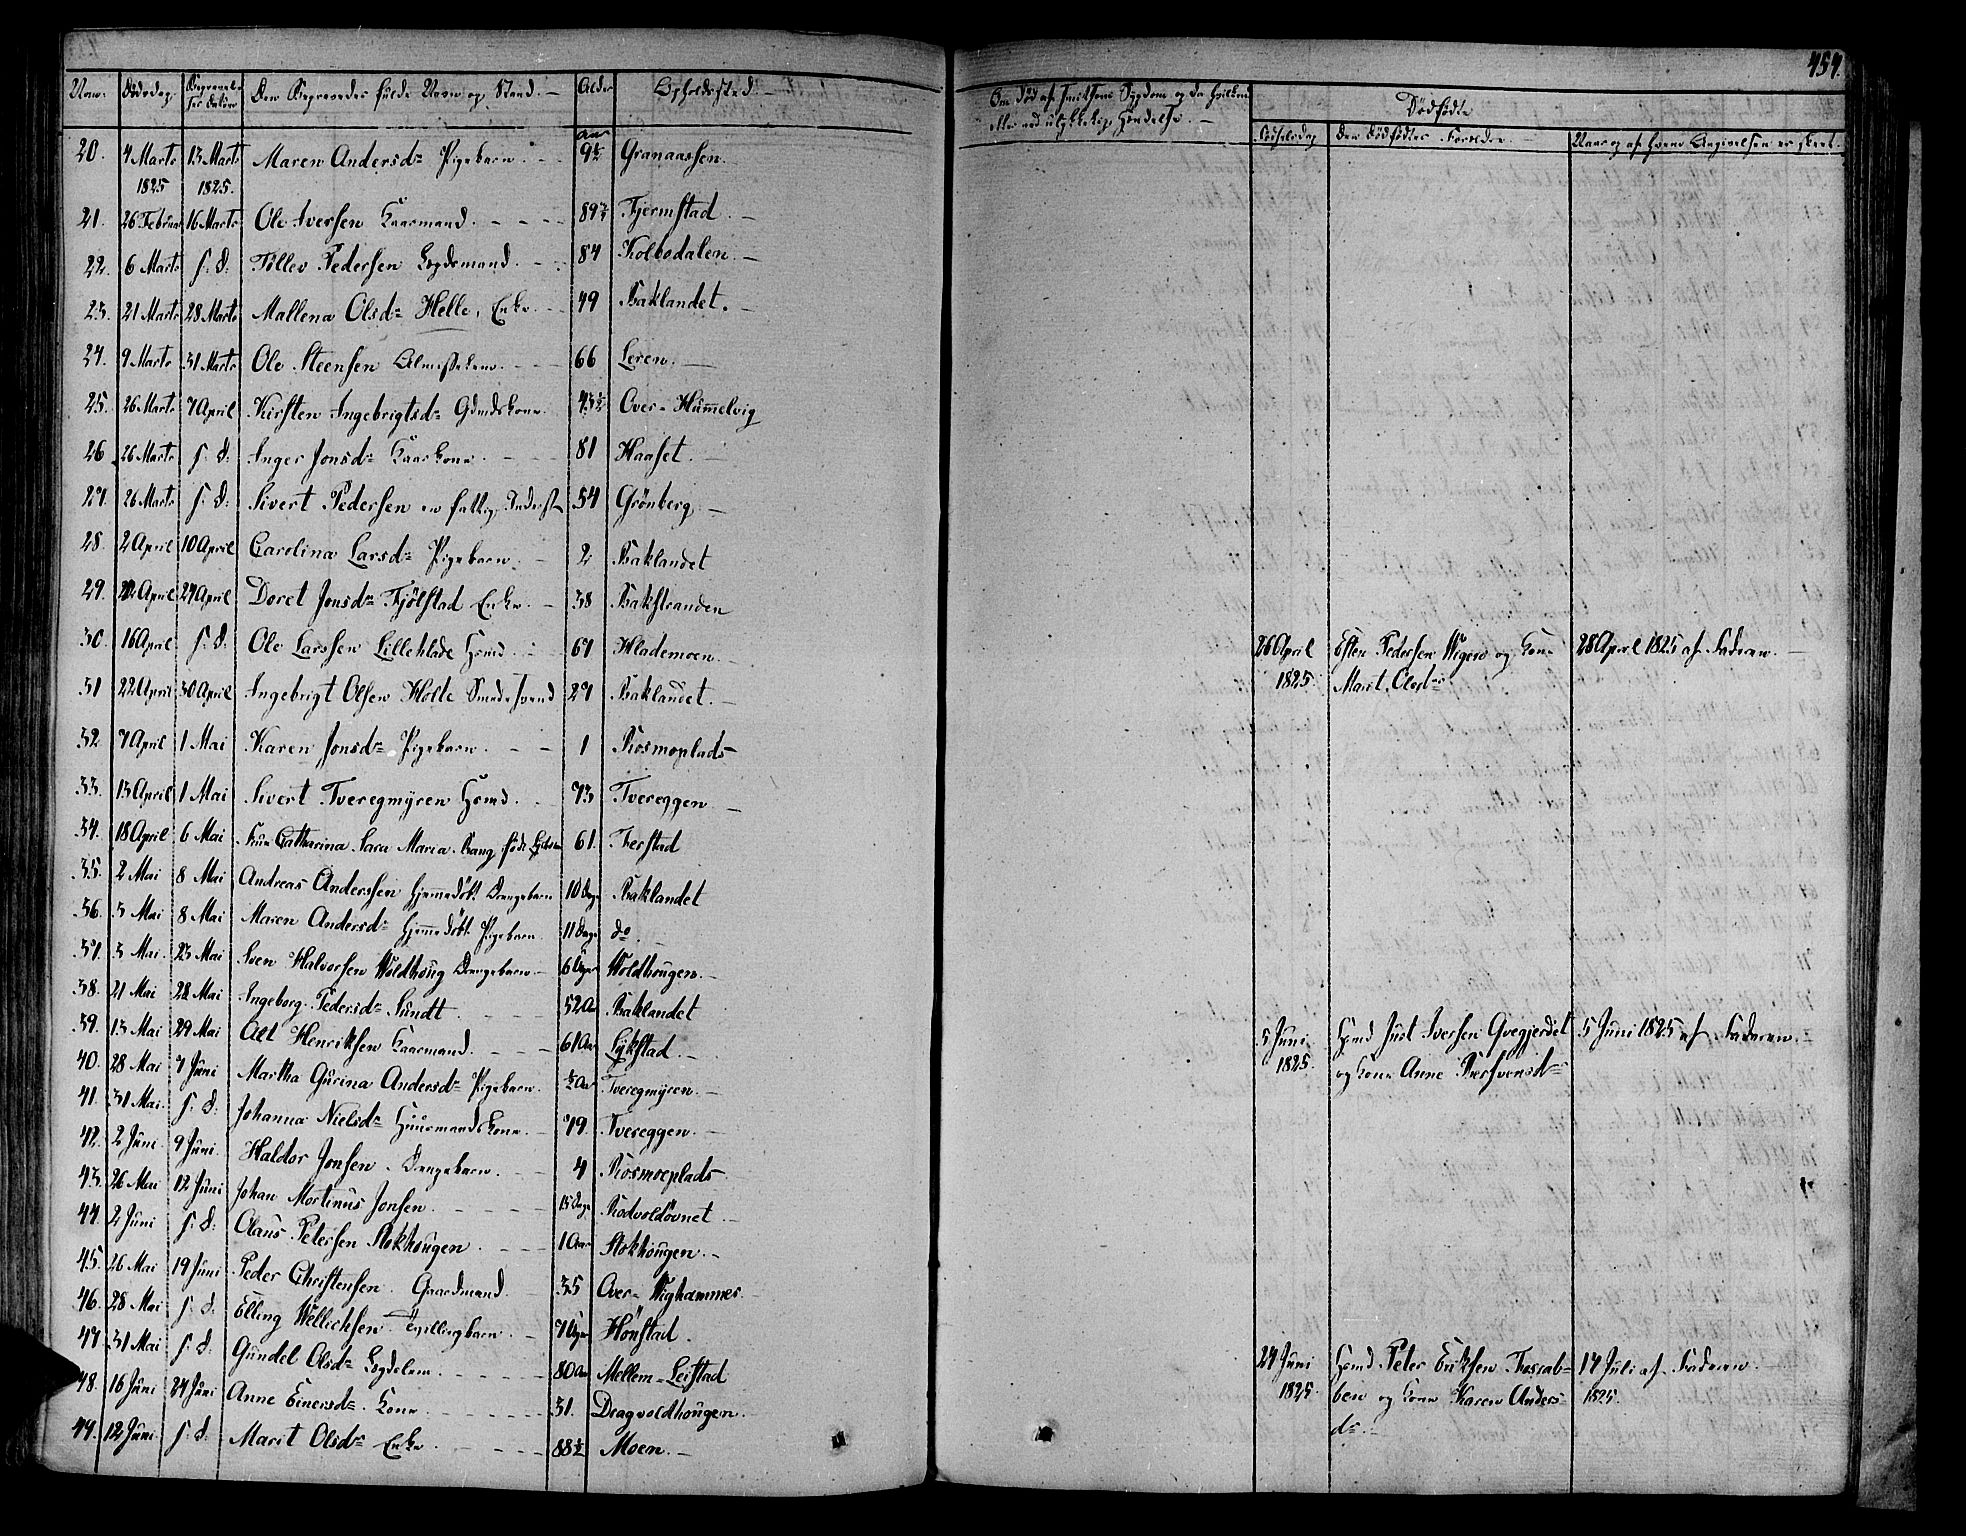 454.
Num. Dødsdag. Begravelsesdatum Den Begravedes fulde Navn og Stand. Alder Opholdssted.
Aar
20. 4 Marts 1825 13 Marts 1825. Maren Andersdr Pigebarn. 9½ Granaassen.
21. 26 Februar 16 Marts Ole Iversen Kaarmand. 89 Tjermstad.
22. 6 Marts s. d. Tollev Pedersen Lægdemand. 84 Kolbodalen.
23. 21 Marts 28 Marts Mallena Olsdr Helle, Enke. 49 Baklandet.
24. 9 Marts 31 Marts Ole Steensen 66 Leren.
25. 26 Marts 7 April Kirsten Ingebrigtsdr Gdmdskone. 43½ Over-Hummelvig
26. 26 Marts s. d. Inger Jonsdr Kaarkone. 81 Haaset.
27. 26 Marts s. d. Sivert Pedersen en fattig Inderst 54 Grönberg.
28. 2 April 10 April Carolina Larsdr Pigebarn. 2 Baklandet
29. 20 April 27 April Doret Jonsdr Fjölstad Enke. 38 Bakstranden
30. 16 April s. d. Ole Larssen Lillehlade Hsmd. 67 Hlademoen.
31 22 April 30 April Ingebrigt Olsen Holte Smedesvend 27 Baklandet.
32. 7 April 1 Mai Karen Jonsdr Pigebarn. 1 Rosmoplads
33. 13 April 1 Mai Sivert Tveregmÿren Hsmd. 73 Tvereggen
34. 18 April 6 Mai Fru Catharina Sara Maria Bang født 61. Ferstad
35. 2 Mai 8 Mai Andreas Anderssen hjemmedöbt Drengebarn 10 Dage Baklandet
36. 3 Mai 8 Mai Maren Andersdr hjemmedöbt Pigebarn. 11 Dage do
37. 3 Mai 23 Mai Sven Halvorsen Woldhoug Drengebarn 6 Uger Woldhougen.
38. 21 Mai 28 Mai Ingeborg Pedersdr Sundt. 52 Aar Baklandet
39. 13 Mai 29 Mai Alt Henriksen Kaarmand. 61 Aar Lÿkstad.
40. 28 Mai 7 Juni Martha Gurina Andersdr Pigebarn. ½ Aar Tveregmÿren.
41. 31 Mai s. d. Johanna Nielsdr Huusmandskone. 79. Tvereggen.
42. 2 Juni 9 Juni Haldor Jonsen. Drengebarn. 4 Rosmoeplads
43. 26 Mai 12 Juni Johan Mortinus Jonsen. 15 Dage Rodvoldövnet.
44. 2 Juni s. d. Claus Petersen Stokhougen. 1 Aar Stokhougen.
45. 26 Mai 19 Juni Peder Christensen. Gaardmand. 35 Over-Wighammer.
46. 28 Mai s. d. Elling Wellichsen. Tvillingbarn. 7 Uger Hönstad.
47. 31 Mai s. d. Gundel Olsdr Lægdelem. 80 Aar Mellem-Leistad
48. 16 Juni 24 Juni Anne Einersdr. Kone. 31. Dragvoldhougen.
49. 12 Juni. s. d. Marit Olsdr Enke. 88½ Moen.
Om død af smitsom Sygdom og da hvilken
eller ved ulykkelig Hændelse.
Dødfødte
Fødselsdag Den Dødfødtes Forældre. Naar og af hvem Angivelsen er skeet.
26 April 1825. Esten Pedersen Wigen og Kone Marit Olsdr 28 April 1825 af Faderen.
5 Juni 1825. Hsmd Just Iversen Qvegjerdet og Kone Anne 5 Juni 1825 af Faderen.
24 Juni 1825. Hsmd Peter Eriksen og Kone Karen Andersdr. 14 Juli af Faderen. 1825.